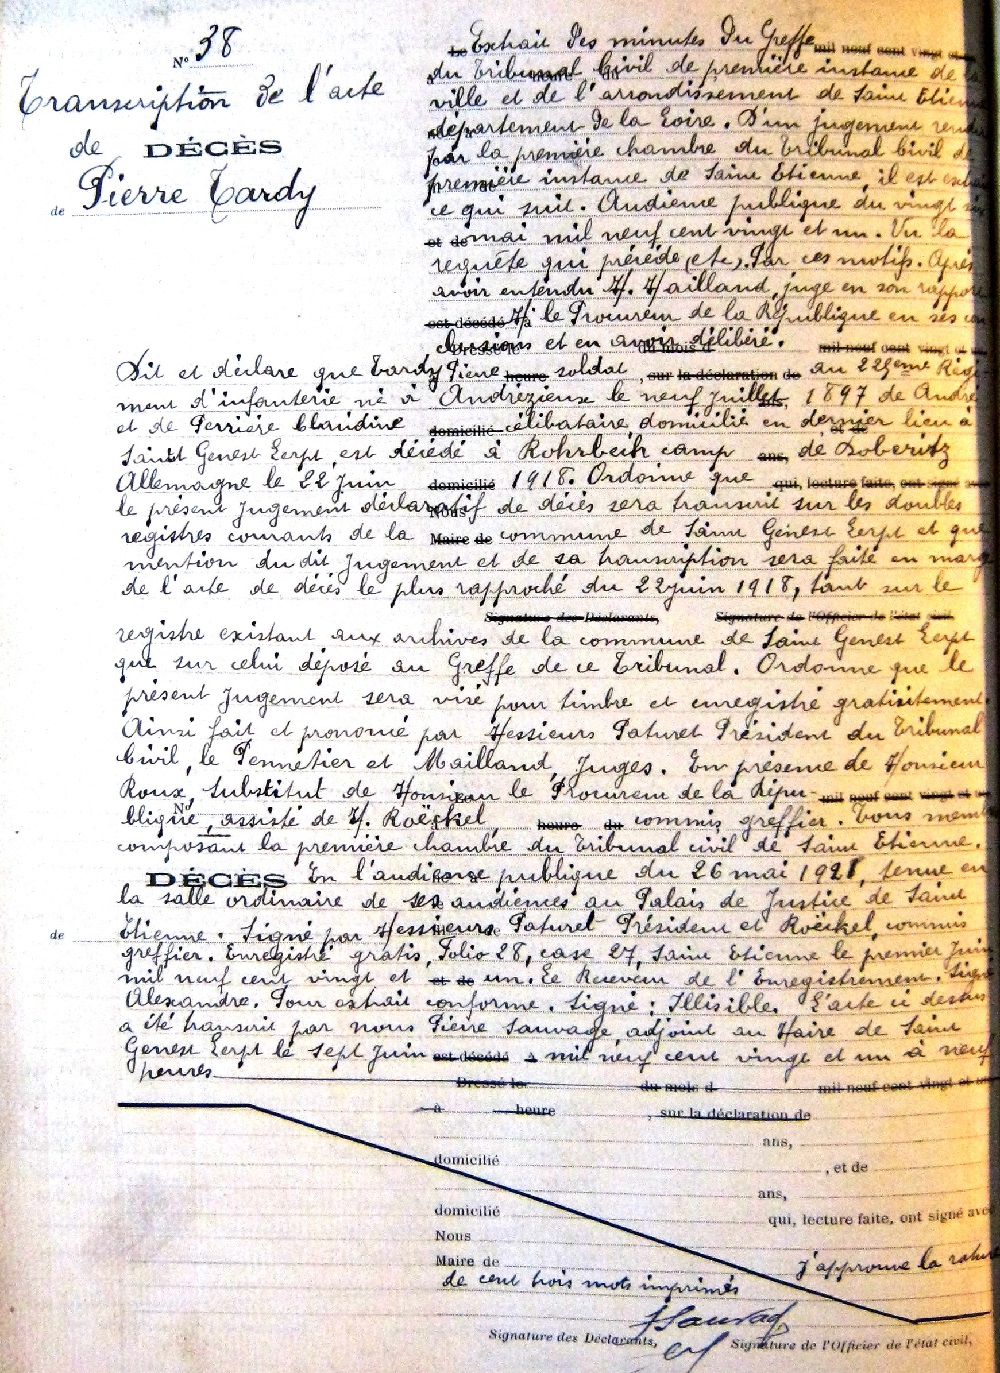 N° 38
Transcription de l'acte
de DÉCÈS
de Pierre Tardy
Extrait des minutes du Greffe mil neuf cent vingt et un
du Tribunal Civil de première instance de la
ville et de l'arrondissement de Saint Etienne
département de la Loire. D'un jugement rendu
par la première chambre du Tribunal Civil de
première instance de Saint Etienne, il est extrait
ce qui suit. Audience publique du vingt six
et de mai mil neuf cent vingt et un. Vu la
requête qui précède (etc). Par ces motifs. Après
avoir entendu M. Mailland, juge en son rapport
est décédé à M. le Procureur de la République en ses con
Dressé le clusions et en avoir délibéré. du mois d mil neuf cent vingt et un
Dit et déclare que Tardy Pierre heure soldat, sur la déclaration de au 225eme Régi-
ment d'infanterie né à Andrézieux le neuf Juillet ans, 1897 de André
et de Perrière Claudine domicilié célibataire, domicilié en dernier lieu à
Saint Genest Lerpt, est décédé à Rohrbeck camp ans, de Doberitz
Allemagne le 22 juin domicilié 1918. Ordonne que qui, lecture faite, ont signé avec
le présent Jugement déclaratif Nous de décès sera transcrit sur les doubles
registres courants de la Maire de commune de Saint Genest Lerpt et que
mention du dit Jugement et de sa transcription sera faite en marge
de l'acte de décès le plus rapproché du 22 juin 1918, tant sur le
Signature des Déclarants, Signature de l'Officier de l'état civil,
registre existant aux archives de la commune de Saint Genest Lerpt
que sur celui déposé au Greffe de ce Tribunal. Ordonne que le
présent Jugement sera visé pour timbre et enregistré gratisitement.
Ainsi fait et prononcé par Messieurs Paturet Président du Tribunal
Civil, le Pennetier et Mailland, Juges. En présence de Monsieur
Roux, Substitut de Monsieur le Procureur de la Répu- mil neuf cent vingt et un
N° blique, assisté de M. Roëckel, heure du commis greffier. Tous membres
composant la première chambre du Tribunal civil de Saint Etienne.
DÉCÈS En l'audience publique du 26 mai 1921, tenue en
la salle ordinaire de ses audiences au Palais de Justice de Saint
de Etienne. Signé par Messieurs Paturel Président et Roëckel, commis
greffier. Enregistré gratis, Folio 28, case 27, Saint Etienne le premier Juin
mil neuf cent vingt et et de un. Le Receveur de l'Enregistrement. Signé
Alexandre. Pour extrait conforme. Signé : Illisible. L'acte ci dessus
a été transcrit par nous Pierre Sauvage adjoint au Maire de Saint
Genest Lerpt le sept Juin est décédé à mil neuf cent vingt et un à neuf
heures Dressé le du mois d mil neuf cent vingt et un
à heure , sur la déclaration de
ans,
domicilié , et de
ans,
domicilié qui, lecture faite, ont signé avec
Nous
Maire de j'approuve la rature
de cent trois mots imprimés
Sauvage
Signature des Déclarants, Signature de l'Officier de l'état civil,